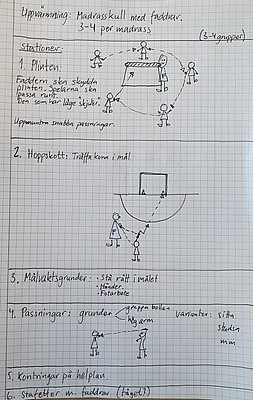 Uppvärmning: Madrasskull med faddrar.
3-4 per madrass
(3-4 grupper)
Stationer:
1. Plinten:
Faddern ska skydda
plinten. Spelarna ska
passa runt.
Den som har läge "skjuter".
Uppmuntra snabba passningar.
2. Hoppskott: Träffa kona i mål
3. Målvaktsgrunder: · Stå rätt i målet
· Händer
· Fotarbete
4. Passningar: grunder
greppa bollen
hög arm
varianter: sitta
studsa
mm
5. Kontringar på helplan
6. Stafetter m. faddrar (tåget?)